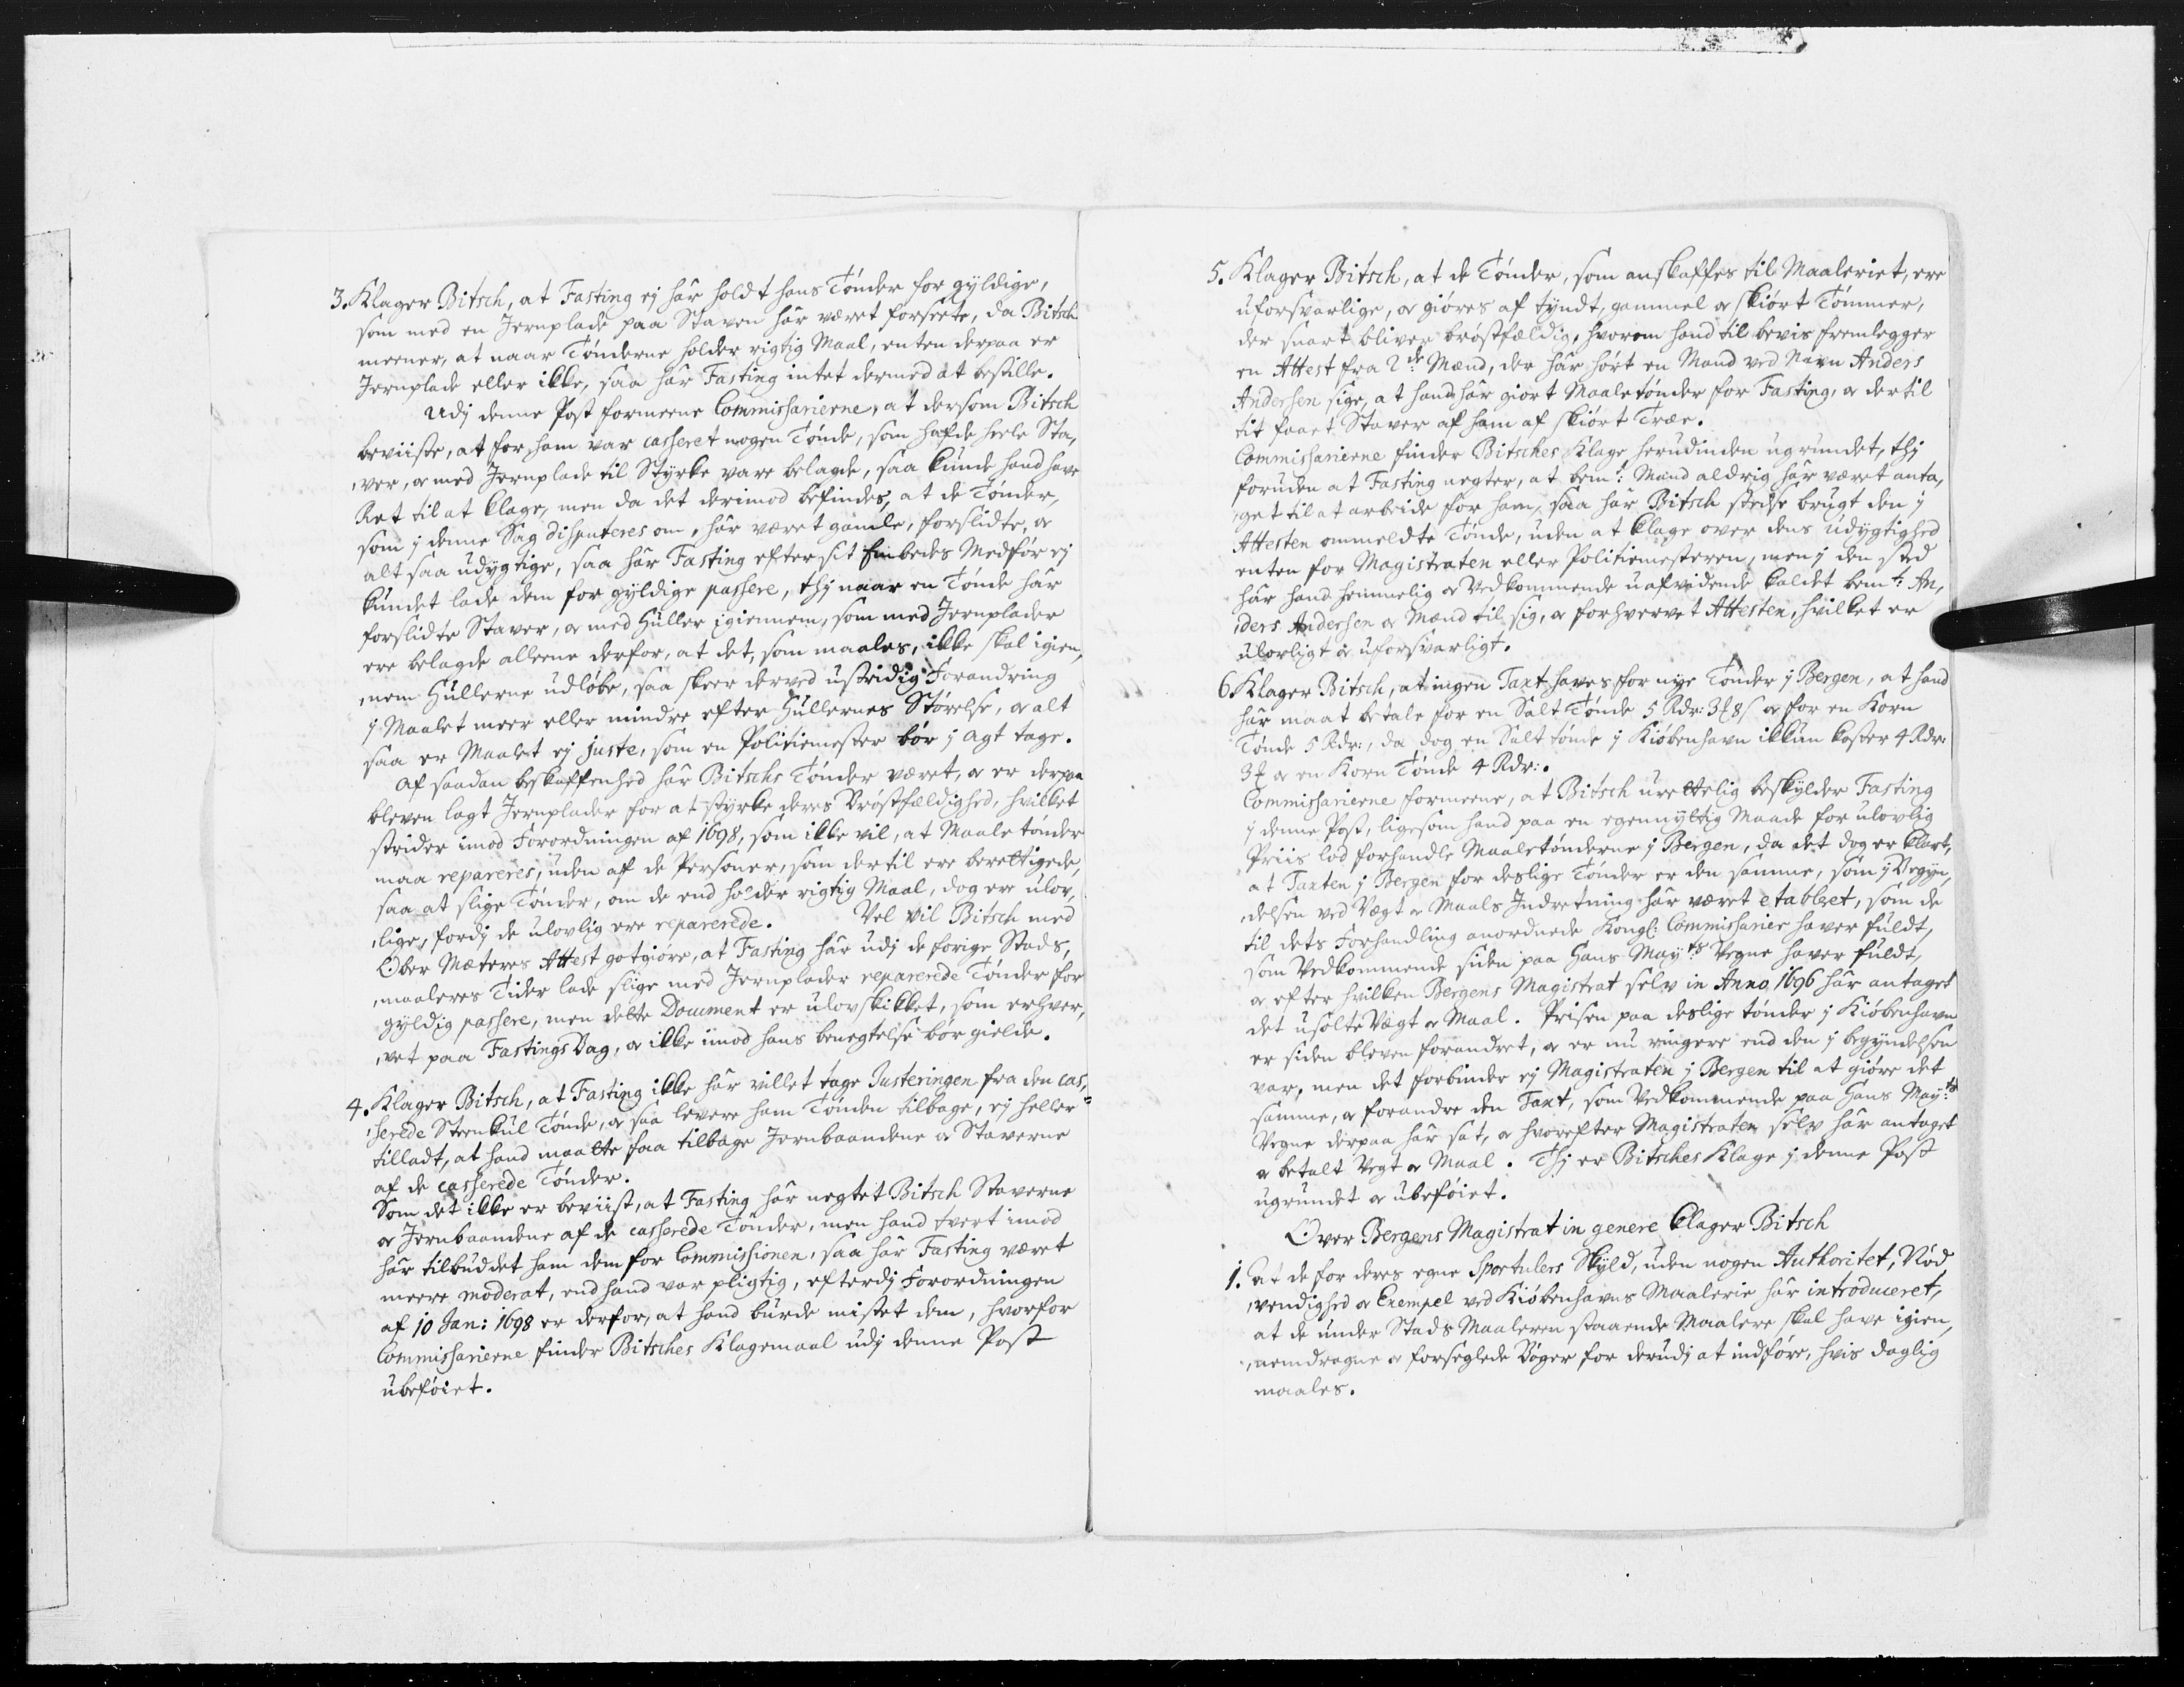 3. Klager Bitsch, at Fasting ej har holdt hans Tønder for gyldige,
som med en Jernplade paa Staven har været forseete, da Bitsch
meener, at naar Tønderne holder rigtig Maal, enten derpaa er
Jernplade eller ikke, saa har Fasting intet dermed at bestille.
Udj denne Post formeene Commissarierne, at dersom Bitsch
beviiste, at for ham var casseret nogen Tønde, som hafde heele Sta,
,ver, og med Jernplade til Styrke vare belagde, saa kunde hand have
Ret til at klage, men da det derimod befindes, at de Tønder,
som j denne Sag disputeres om, har været gamle, forslidte, og
alt saa udygtige, saa har Fasting efter sit Embedes Medfør ej
kundet lade dem for gyldige passere, thj naar en Tønde har
forslidte Staver, og med Huller igiennem, som med Jernplader
ere belagde alleene derfor, at det, som maales, ikke skal igien,
,nem Hullerne udløbe, saa skeer derved ustridig Forandring
j Maalet meer eller mindre efter Hullernes Størelse, og alt
saa er Maalet ej juste, som en Politiemester bør j agt tage.
Af saadan beskaffenhed har Bitschs Tønder været, og er derpaa
bleven lagt Jernplader for at styrke deres Brøstfældighed, hvilket
strider imod Forordningen af 1698, som ikke vil, at Maale tønder
maa repareres, uden af de Personer, som dertil ere berettigede,
saa at slige Tønder, om de end holder rigtig Maal, dog ere ulov,
,lige, fordj de ulovlig ere reparerede. Vel vil Bitsch med
Ober Mæteres Attest gotgiøre, at Fasting har udj de forige Stads,
,maaleres Tider lade slige med Jernplader reparerede Tønder for
gyldig passere, men dette Document er ulovskikket, som erhver,
,vet paa Fastings Bag, og ikke imod hans benegtelse bør gielde.
4. Klager Bitsch, at Fasting ikke har villet tage Justeringen fra den cas,
,serede Steenkul Tønde, og saa levere ham Tønden tilbage, ej heller
tilladt, at hand maatte faa tilbage Jernbaandene og Staverne
af de casserede Tønder.
Som det ikke er beviist, at Fasting har negtet Bitsch Staverne
og Jernbaandene af de casserede Tønder, men hand tvert imod
har tilbuddet ham dem for Commissionen, saa har Fasting været
meere moderat, end hand var pligtig, efterdj Forordningen
af 10 Jan: 1698 er derfor, at hand burde mistet dem, hvorfor
Commissarierne finder Bitsches Klagemaal udj denne Post
ubeføiet.
5. Klager Bitsch, at de Tønder, som anskaffes til Maaleriet, ere
uforsvarlige, og giøres af tyndt, gammel og skiørt Tømmer,
der snart bliver brøstfældig, hvorom hand til bevis fremlegger
en Attest fra 2de Mænd, der har hørt en Mand ved Navn Anders
Andersen sige, at hand har giort Maaletønder for Fasting, og dertil
tit faaet Staver af ham af skiørt Træe.
Commissarierne finder Bitsches Klage herudinden ugrundet, thj
foruden at Fasting negter, at bemt: Mand aldrig har været anta,
,get til at arbeide for ham, saa har Bitsch stedse brugt den j
Attesten ommeldte Tønde, uden at klage over dens udygtighed
enten for Magistraten eller Politiemesteren, men j den sted
har hand hemmelig og Vedkommende uafvidende kaldet bemt: An,
,ders Andersen og Mænd til sig, og forhvervet Attesten, hvilket er
ulovligt og uforsvarligt.
6. Klager Bitsch, at ingen Taxt haves for nye Tønder j Bergen, at hand
har maat betale for en Salt Tønde 5 Rdr: 3 ₰ 8 s og for en Korn
Tønde 5 Rdr:, da dog en Salt tønde j Kiøbenhavn ikkun koster 4 Rdr:
3 ₰ og en Korn Tønde 4 Rdr:.
Commissarierne formeene, at Bitsch urettelig beskylder Fasting
j denne Post, ligesom hand paa en egennyttig Maade for ulovlig
Priis lod forhandle Maaletønderne j Bergen, da det dog er klart,
at Taxten j Bergen for deslige Tønder er den samme, som j Begyn,
,delsen ved Vægt og Maals Indretning har været etableret, som de
til dets Forhandling anordnede Kongl: Commissarier haver fuldt,
som Vedkommende siden paa Hans Mayts Vegne haver fuldt,
og efter hvilken Bergens Magistrat selv in Anno 1696 har antaget
det usolte Vægt og Maal. Prisen paa deslige tønder j Kiøbenhavn
er siden bleven forandret, og er nu ringere end den j begyndelsen
var, men det forbinder ej Magistraten j Bergen til at giøre det
samme, og forandre den Taxt, som Vedkommende paa Hans Mayts
Vegne derpaa har sat, og hvorefter Magistraten selv har antaget
og betalt Vegt og Maal. Thj er Bitsches Klage j denne Post
ugrundet og ubeføiet.
Over Bergens Magistrat in genere klager Bitsch
1. At de for deres egne Sportulers Skyld, uden nogen Authoritet, Nød,
,vendighed og Exempel ved Kiøbenhavns Maalerie har introduceret,
at de under Stads Maaleren staaende Maalere skal have igien,
,nemdragne og forseglede Bøger for derudj at indføre, hvis daglig
maales.